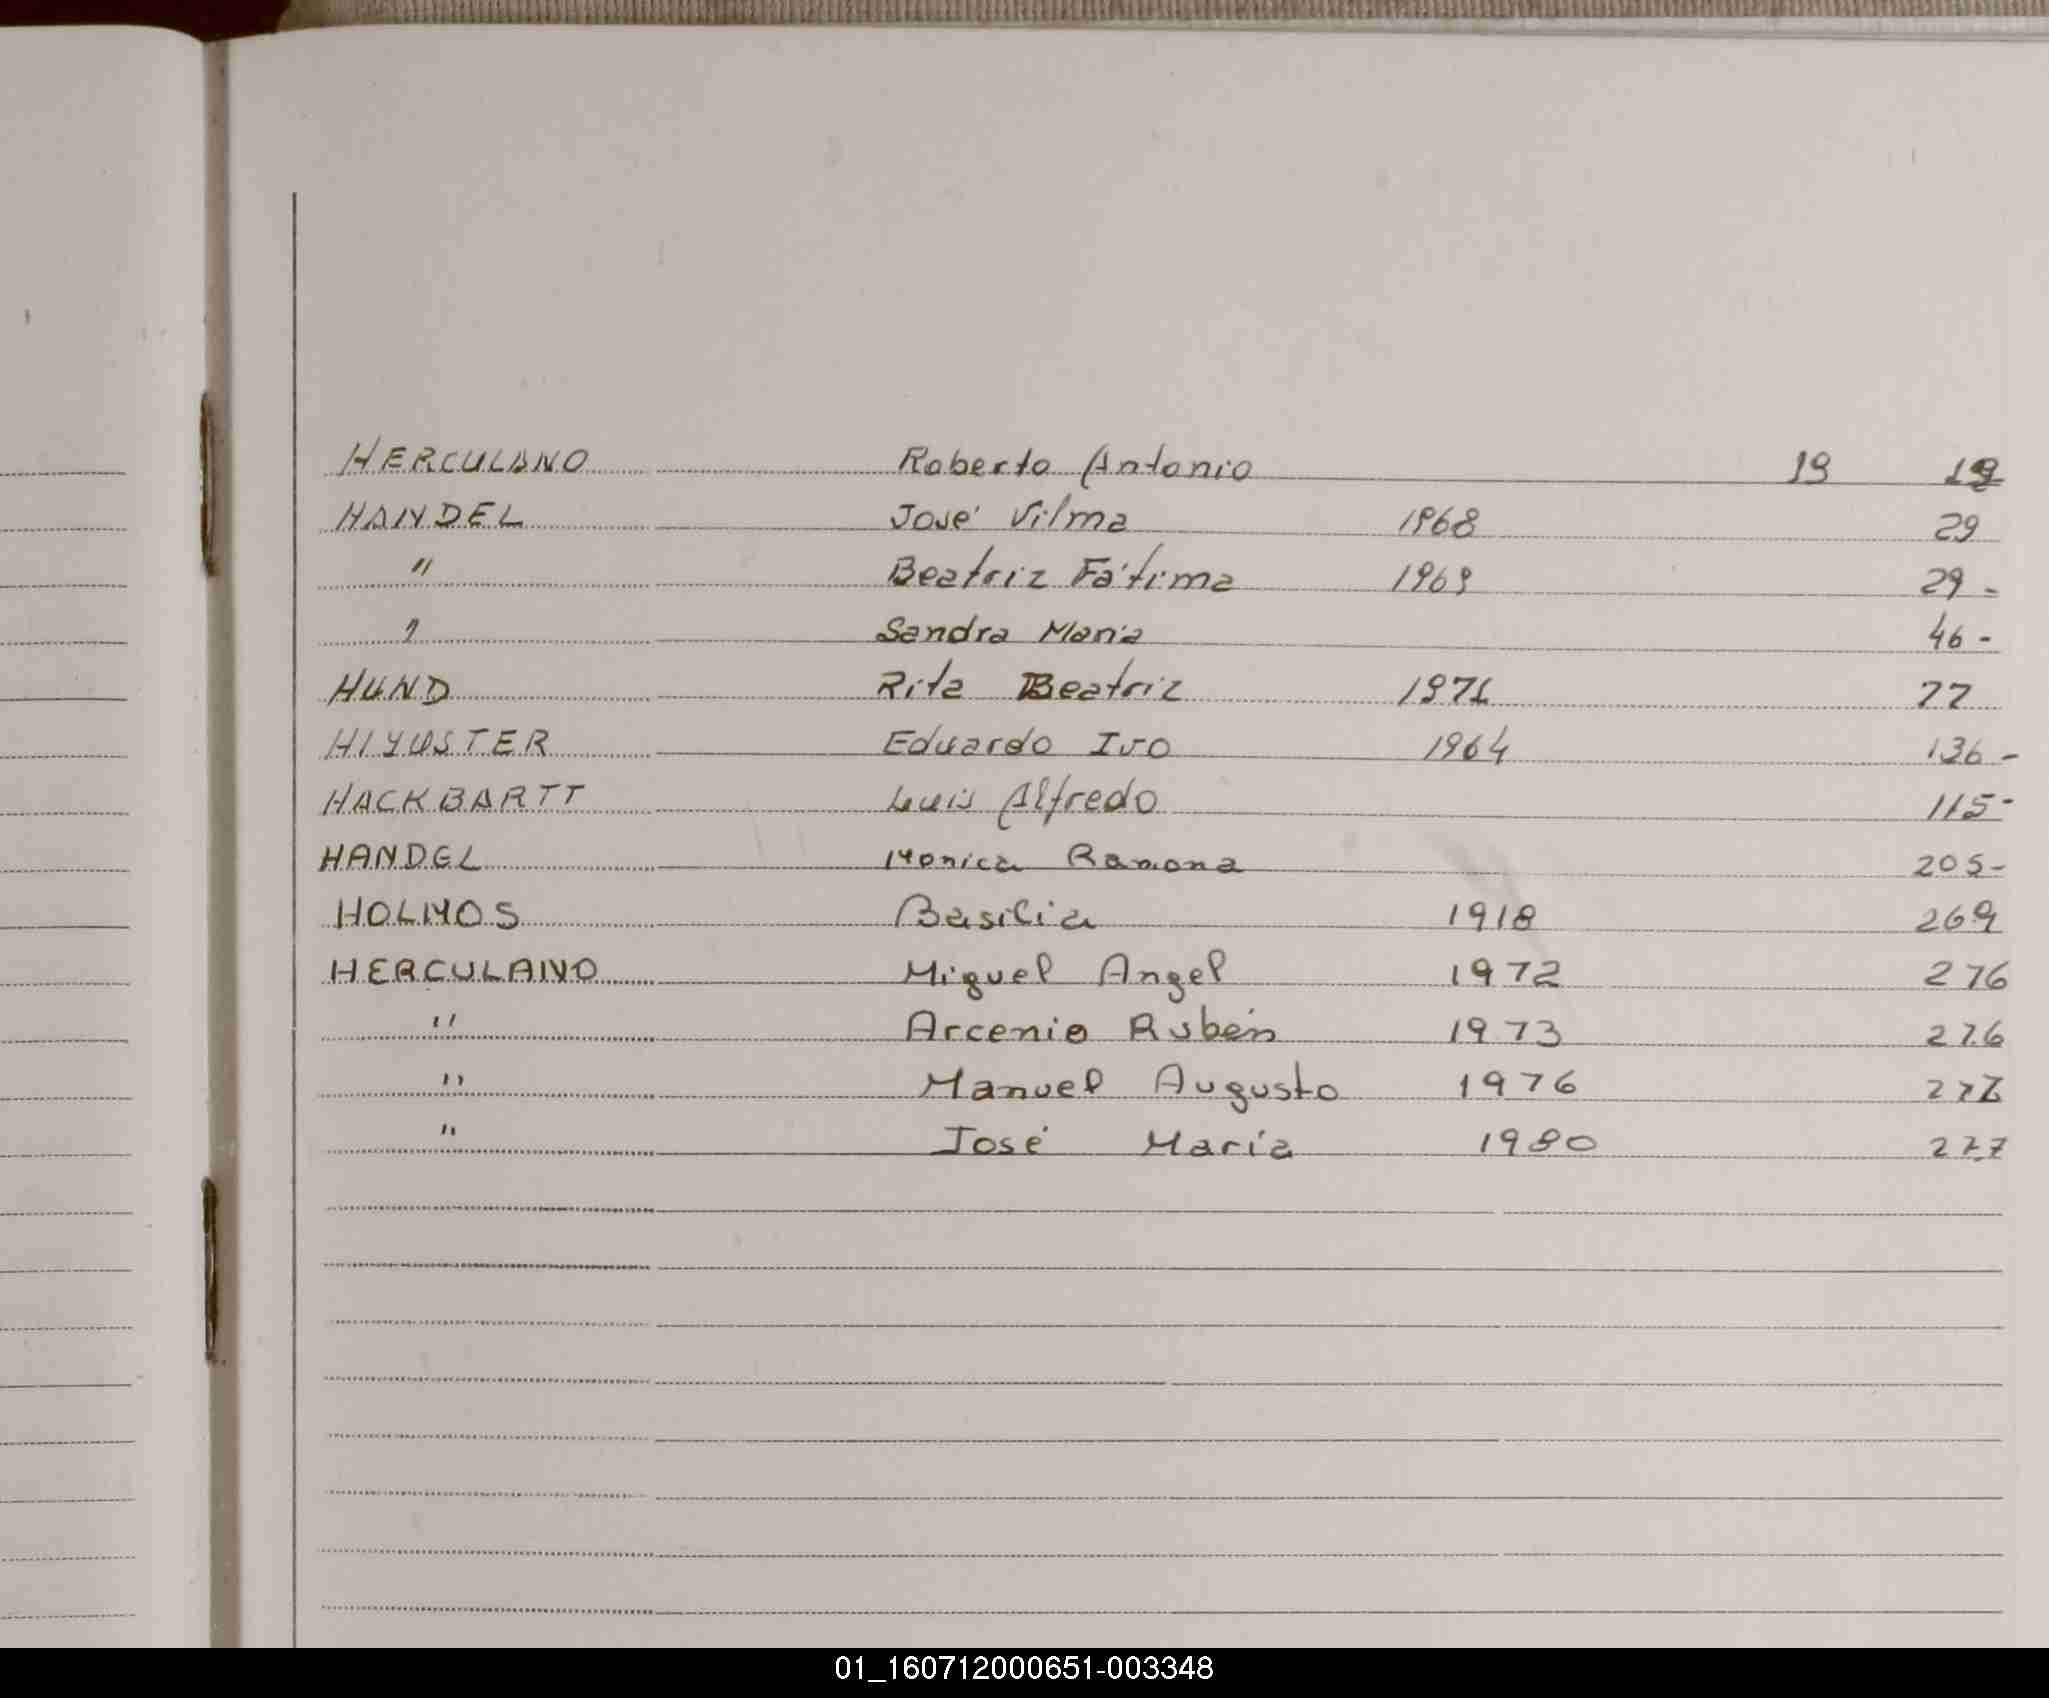 HERCULANO Roberto Antonio 19 19
HANDEL José Vilma 1968 29
" Beatriz Fátima 1969 29 -
" Sandra Maria 46 -
HUND Rita Beatriz 1971 77
HIYUSTER Eduardo Ivo 1964 136 -
HACKBARTT Luis Alfredo 115 -
HANDEL Monica Ramona 205 -
HOLMOS Basilia 1918 269
HERCULANO Miguel Angel 1972 276
" Arcenio Rubén 1973 276
" Manuel Augusto 1976 277
" José María 1980 277
01_160712000651-003348